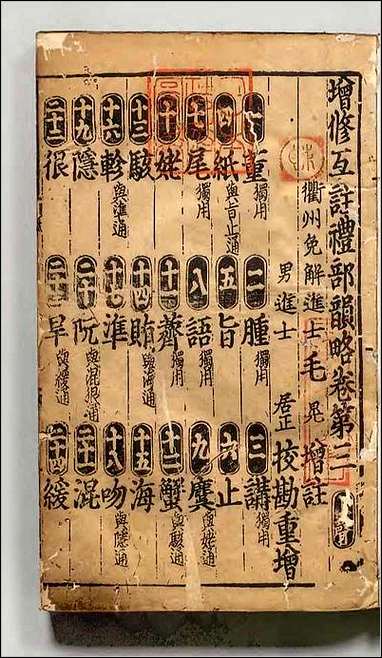 增修互註禮部韻略卷第三 上聲
衢州免解進士毛 晃 增註
男進士 居正 校勘重增
一董獨用 二腫獨用 三講獨用
四紙與旨止通 五旨 六止
七尾獨用 八語獨用 九麌與姥通
十姥 十一薺獨用 十二蟹與駭通
十三駭 十四賄與海通 十五海
十六軫與準通 十七準 十八吻與隱通
十九隱 二十阮與混很通 二十一混
二十二很 二十三旱與緩通 二十四緩